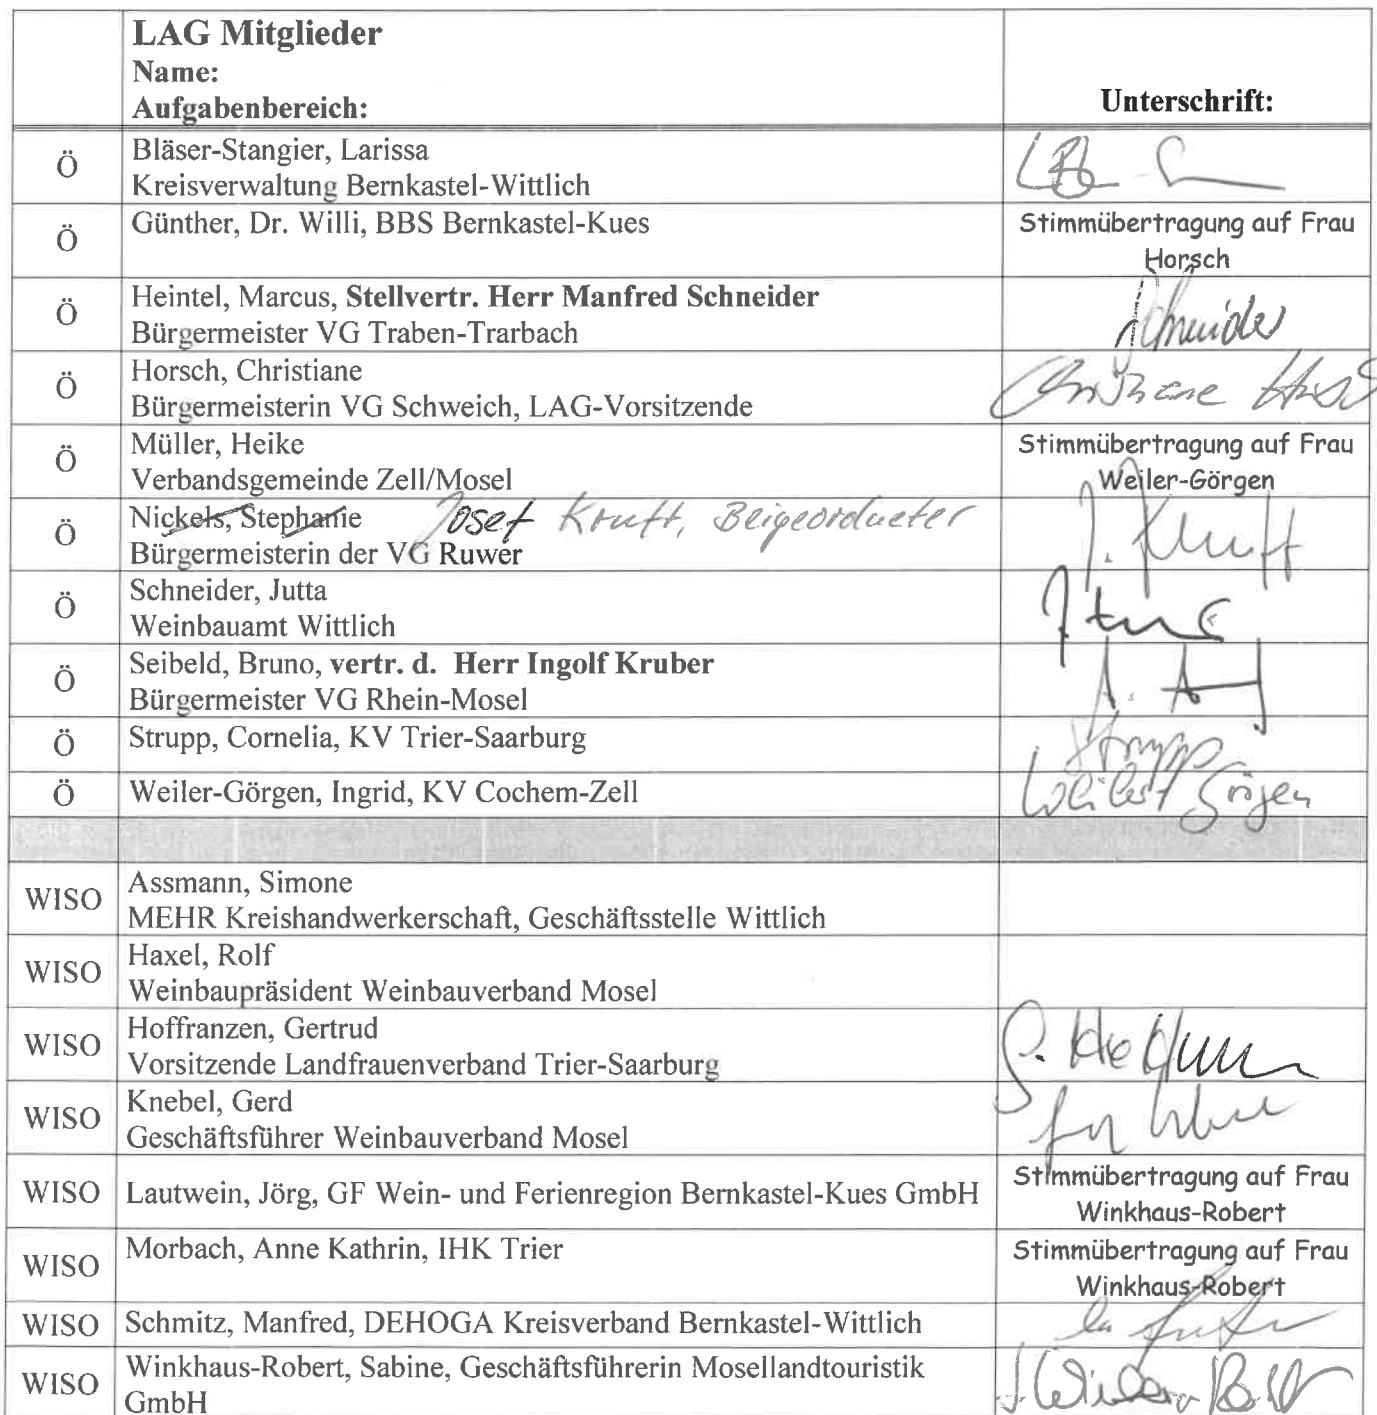 LAG Mitglieder
Name:
Aufgabenbereich:
Unterschrift:
Ö
Bläser-Stangier, Larissa
Kreisverwaltung Bernkastel-Wittlich
Ö
Günther, Dr. Willi, BBS Bernkastel-Kues
Stimmübertragung auf Frau
Horsch
Ö
Heintel, Marcus, Stellvertr. Herr Manfred Schneider
Bürgermeister VG Traben-Trarbach
Schneider
Ö
Horsch, Christiane
Bürgermeisterin VG Schweich, LAG-Vorsitzende
Christiane Horsch
Ö
Müller, Heike
Verbandsgemeinde Zell/Mosel
Stimmübertragung auf Frau
Weiler-Görgen
Ö
Nickels, Stephanie Josef Kruft, Beigeordneter
Bürgermeisterin der VG Ruwer
J. Kruft
Ö
Schneider, Jutta
Weinbauamt Wittlich
Ö
Seibeld, Bruno, vertr. d. Herr Ingolf Kruber
Bürgermeister VG Rhein-Mosel
Ö
Strupp, Cornelia, KV Trier-Saarburg
Strupp
Ö
Weiler-Görgen, Ingrid, KV Cochem-Zell
Weiler-Görgen
WISO
Assmann, Simone
MEHR Kreishandwerkerschaft, Geschäftsstelle Wittlich
WISO
Haxel, Rolf
Weinbaupräsident Weinbauverband Mosel
WISO
Hoffranzen, Gertrud
Vorsitzende Landfrauenverband Trier-Saarburg
WISO
Knebel, Gerd
Geschäftsführer Weinbauverband Mosel
WISO
Lautwein, Jörg, GF Wein- und Ferienregion Bernkastel-Kues GmbH
Stimmübertragung auf Frau
Winkhaus-Robert
WISO
Morbach, Anne Kathrin, IHK Trier
Stimmübertragung auf Frau
Winkhaus-Robert
WISO
Schmitz, Manfred, DEHOGA Kreisverband Bernkastel-Wittlich
WISO
Winkhaus-Robert, Sabine, Geschäftsführerin Mosellandtouristik
GmbH